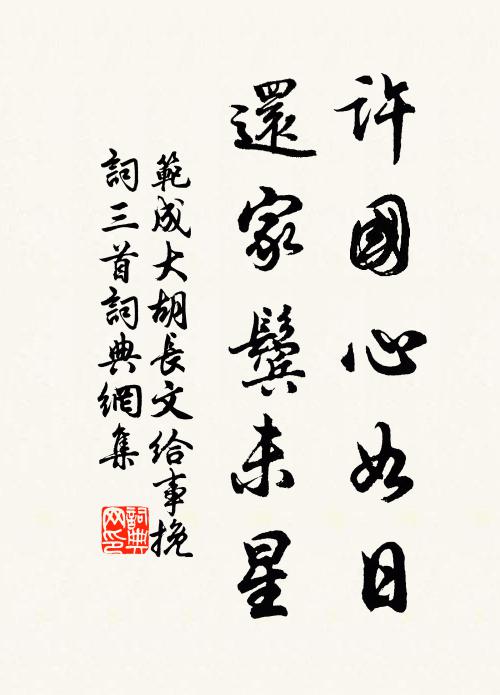 許國心如日
還家鬢未星
範成大胡長文給事挽
詞三首詞典網集
詞典
网印